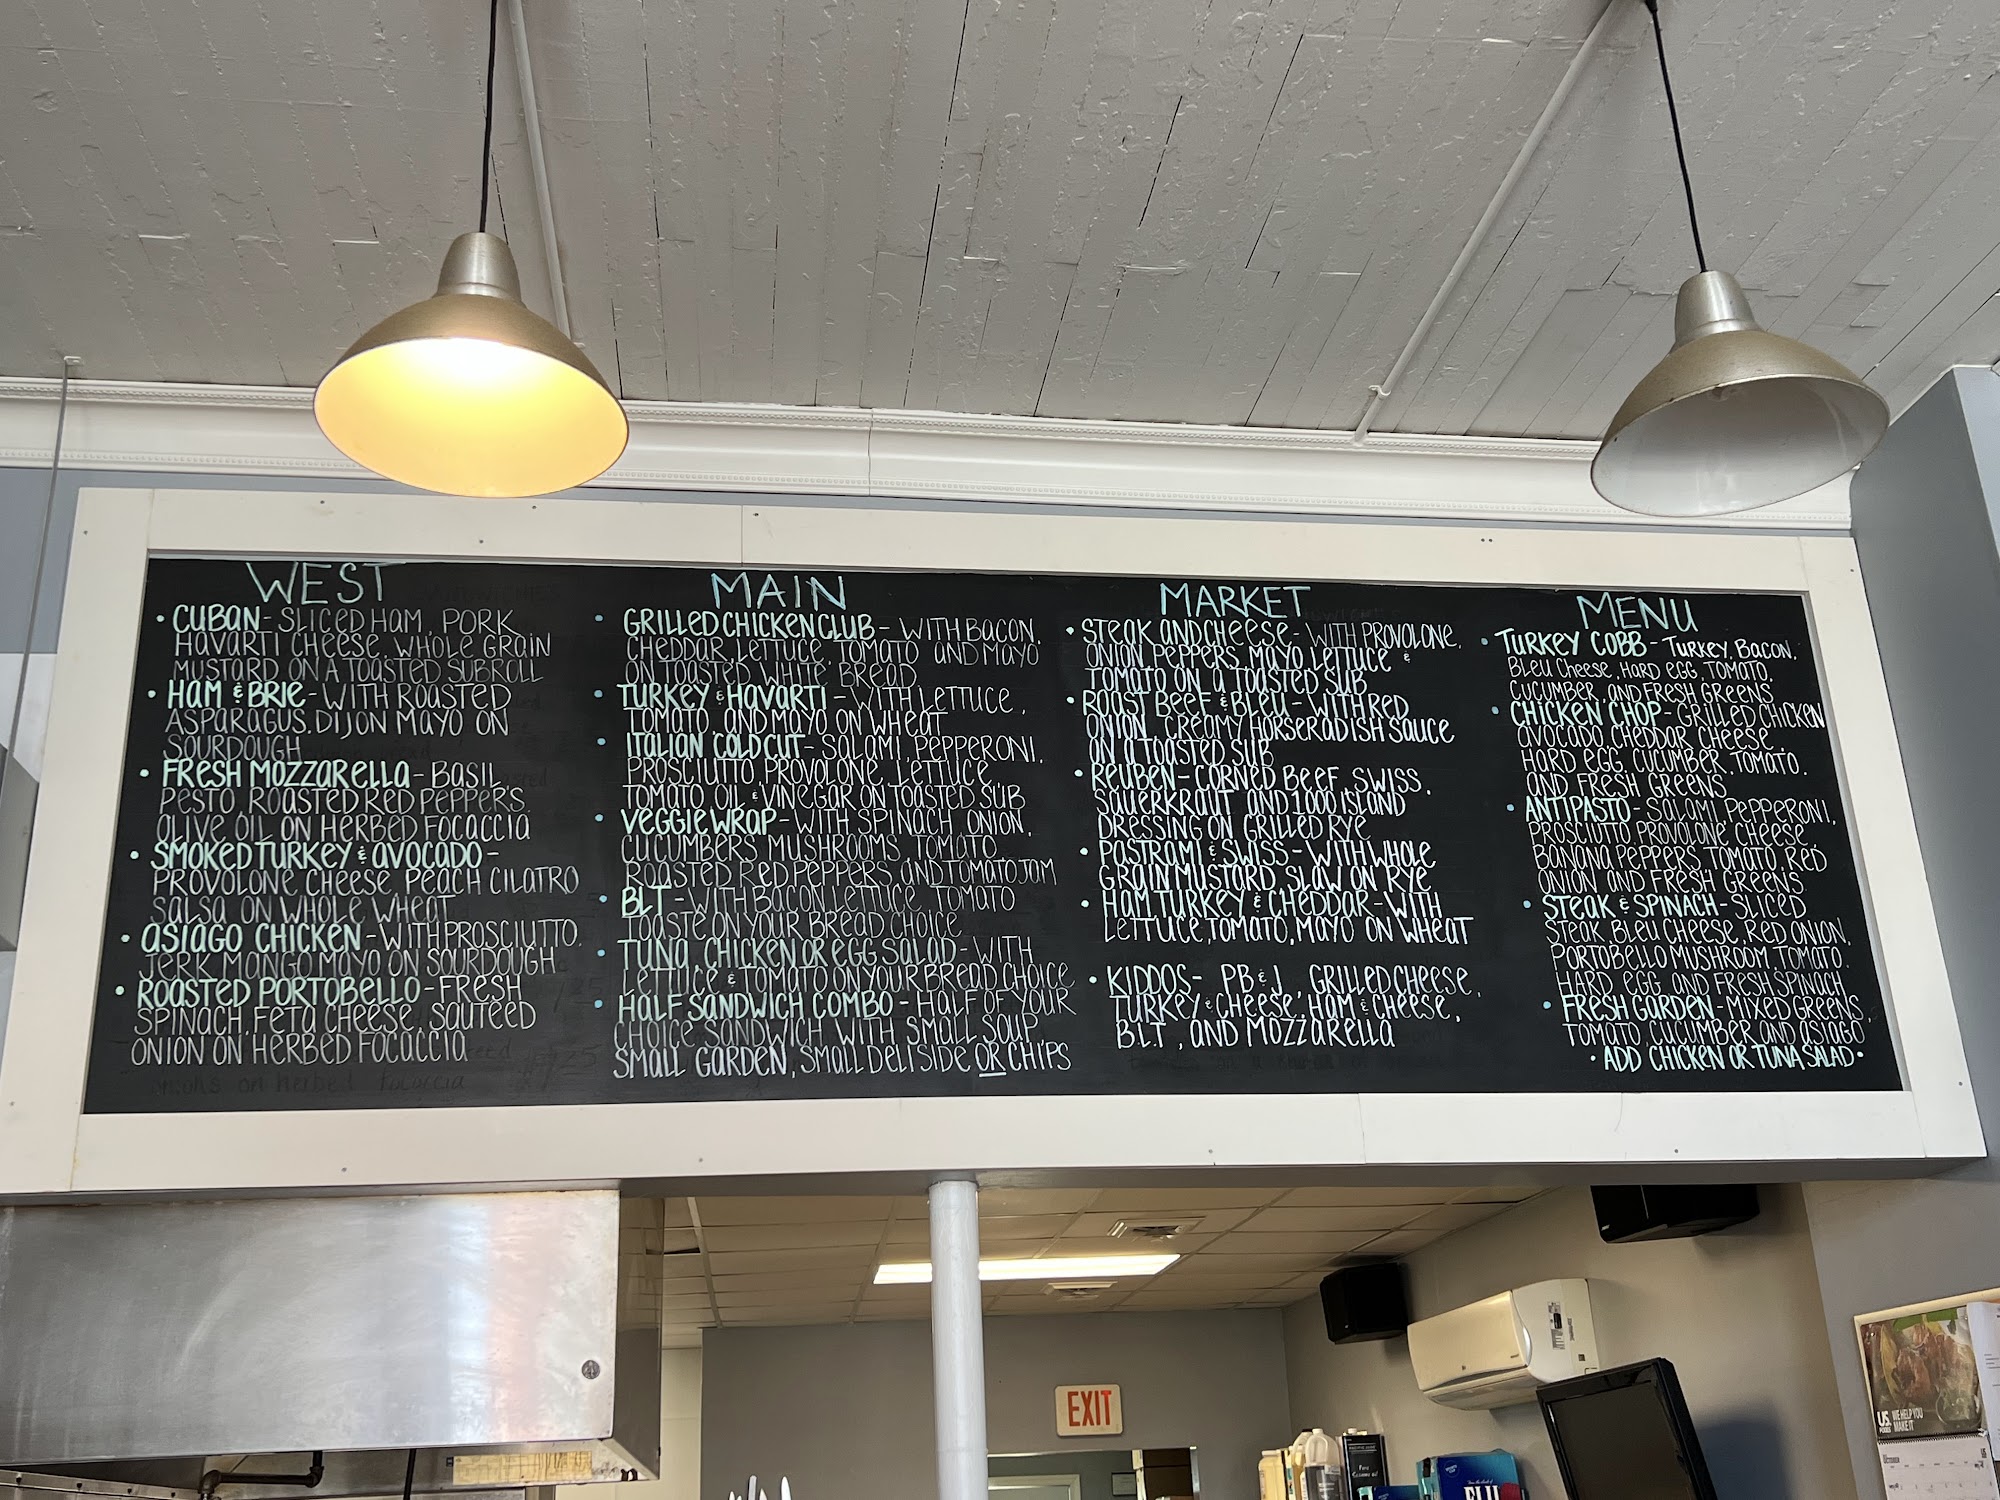 WEST
• CUBAN - SLICED HAM, PORK
HAVARTI CHEESE, WHOLE GRAIN
MUSTARD ON A TOASTED SUB ROLL
• HAM & BRIE - WITH ROASTED
ASPARAGUS, DIJON MAYO ON
SOURDOUGH
• FRESH MOZZARELLA - BASIL
PESTO, ROASTED RED PEPPERS,
OLIVE OIL ON HERBED FOCACCIA
• SMOKED TURKEY & AVOCADO -
PROVOLONE CHEESE, PEACH CILATRO
SALSA ON WHOLE WHEAT
• ASIAGO CHICKEN - WITH PROSCIUTTO,
JERK MANGO MAYO ON SOURDOUGH
• ROASTED PORTOBELLO - FRESH
SPINACH, FETA CHEESE, SAUTEED
ONION ON HERBED FOCACCIA
MAIN
• GRILLED CHICKEN CLUB - WITH BACON,
CHEDDAR, LETTUCE, TOMATO AND MAYO
ON TOASTED WHITE BREAD
• TURKEY & HAVARTI - WITH LETTUCE,
TOMATO, AND MAYO ON WHEAT
• ITALIAN COLD CUT - SALAMI, PEPPERONI,
PROSCIUTTO, PROVOLONE, LETTUCE,
TOMATO OIL & VINEGAR ON TOASTED SUB
• VEGGIE WRAP - WITH SPINACH, ONION,
CUCUMBERS, MUSHROOMS, TOMATO,
ROASTED RED PEPPERS, AND TOMATO JAM
• BLT - WITH BACON, LETTUCE, TOMATO
TOASTE ON YOUR BREAD CHOICE
• TUNA, CHICKEN OR EGG SALAD - WITH
LETTUCE & TOMATO ON YOUR BREAD CHOICE
• HALF SANDWICH COMBO - HALF OF YOUR
CHOICE SANDWICH WITH SMALL SOUP,
SMALL GARDEN, SMALL DELI SIDE OR CHIPS
MARKET
• STEAK AND CHEESE - WITH PROVOLONE,
ONION, PEPPERS, MAYO, LETTUCE &
TOMATO ON A TOASTED SUB
• ROAST BEEF & BLEU - WITH RED
ONION, CREAMY HORSERADISH SAUCE
ON A TOASTED SUB
• REUBEN - CORNED BEEF, SWISS,
SAUERKRAUT AND 1000 ISLAND
DRESSING ON GRILLED RYE
• PASTRAMI & SWISS - WITH WHOLE
GRAIN MUSTARD, SLAW ON RYE
• HAM, TURKEY & CHEDDAR - WITH
LETTUCE, TOMATO, MAYO ON WHEAT
• KIDDOS - PB & J, GRILLED CHEESE,
TURKEY & CHEESE, HAM & CHEESE,
B.L.T, AND MOZZARELLA
MENU
• TURKEY COBB - TURKEY, BACON,
BLEU CHEESE, HARD EGG, TOMATO,
CUCUMBER, AND FRESH GREENS
• CHICKEN CHOP - GRILLED CHICKEN
AVOCADO, CHEDDAR CHEESE,
HARD EGG, CUCUMBER, TOMATO,
AND FRESH GREENS
• ANTIPASTO - SALAMI, PEPPERONI,
PROSCIUTTO, PROVOLONE CHEESE,
BANANA PEPPERS, TOMATO, RED
ONION AND FRESH GREENS
• STEAK & SPINACH - SLICED
STEAK, BLEU CHEESE, RED ONION,
PORTOBELLO MUSHROOM, TOMATO,
HARD EGG, AND FRESH SPINACH
• FRESH GARDEN - MIXED GREENS,
TOMATO, CUCUMBER, AND ASIAGO
• ADD CHICKEN OR TUNA SALAD •
EXIT
US. WE HELP YOU
FOODS MAKE IT
OCTOBER